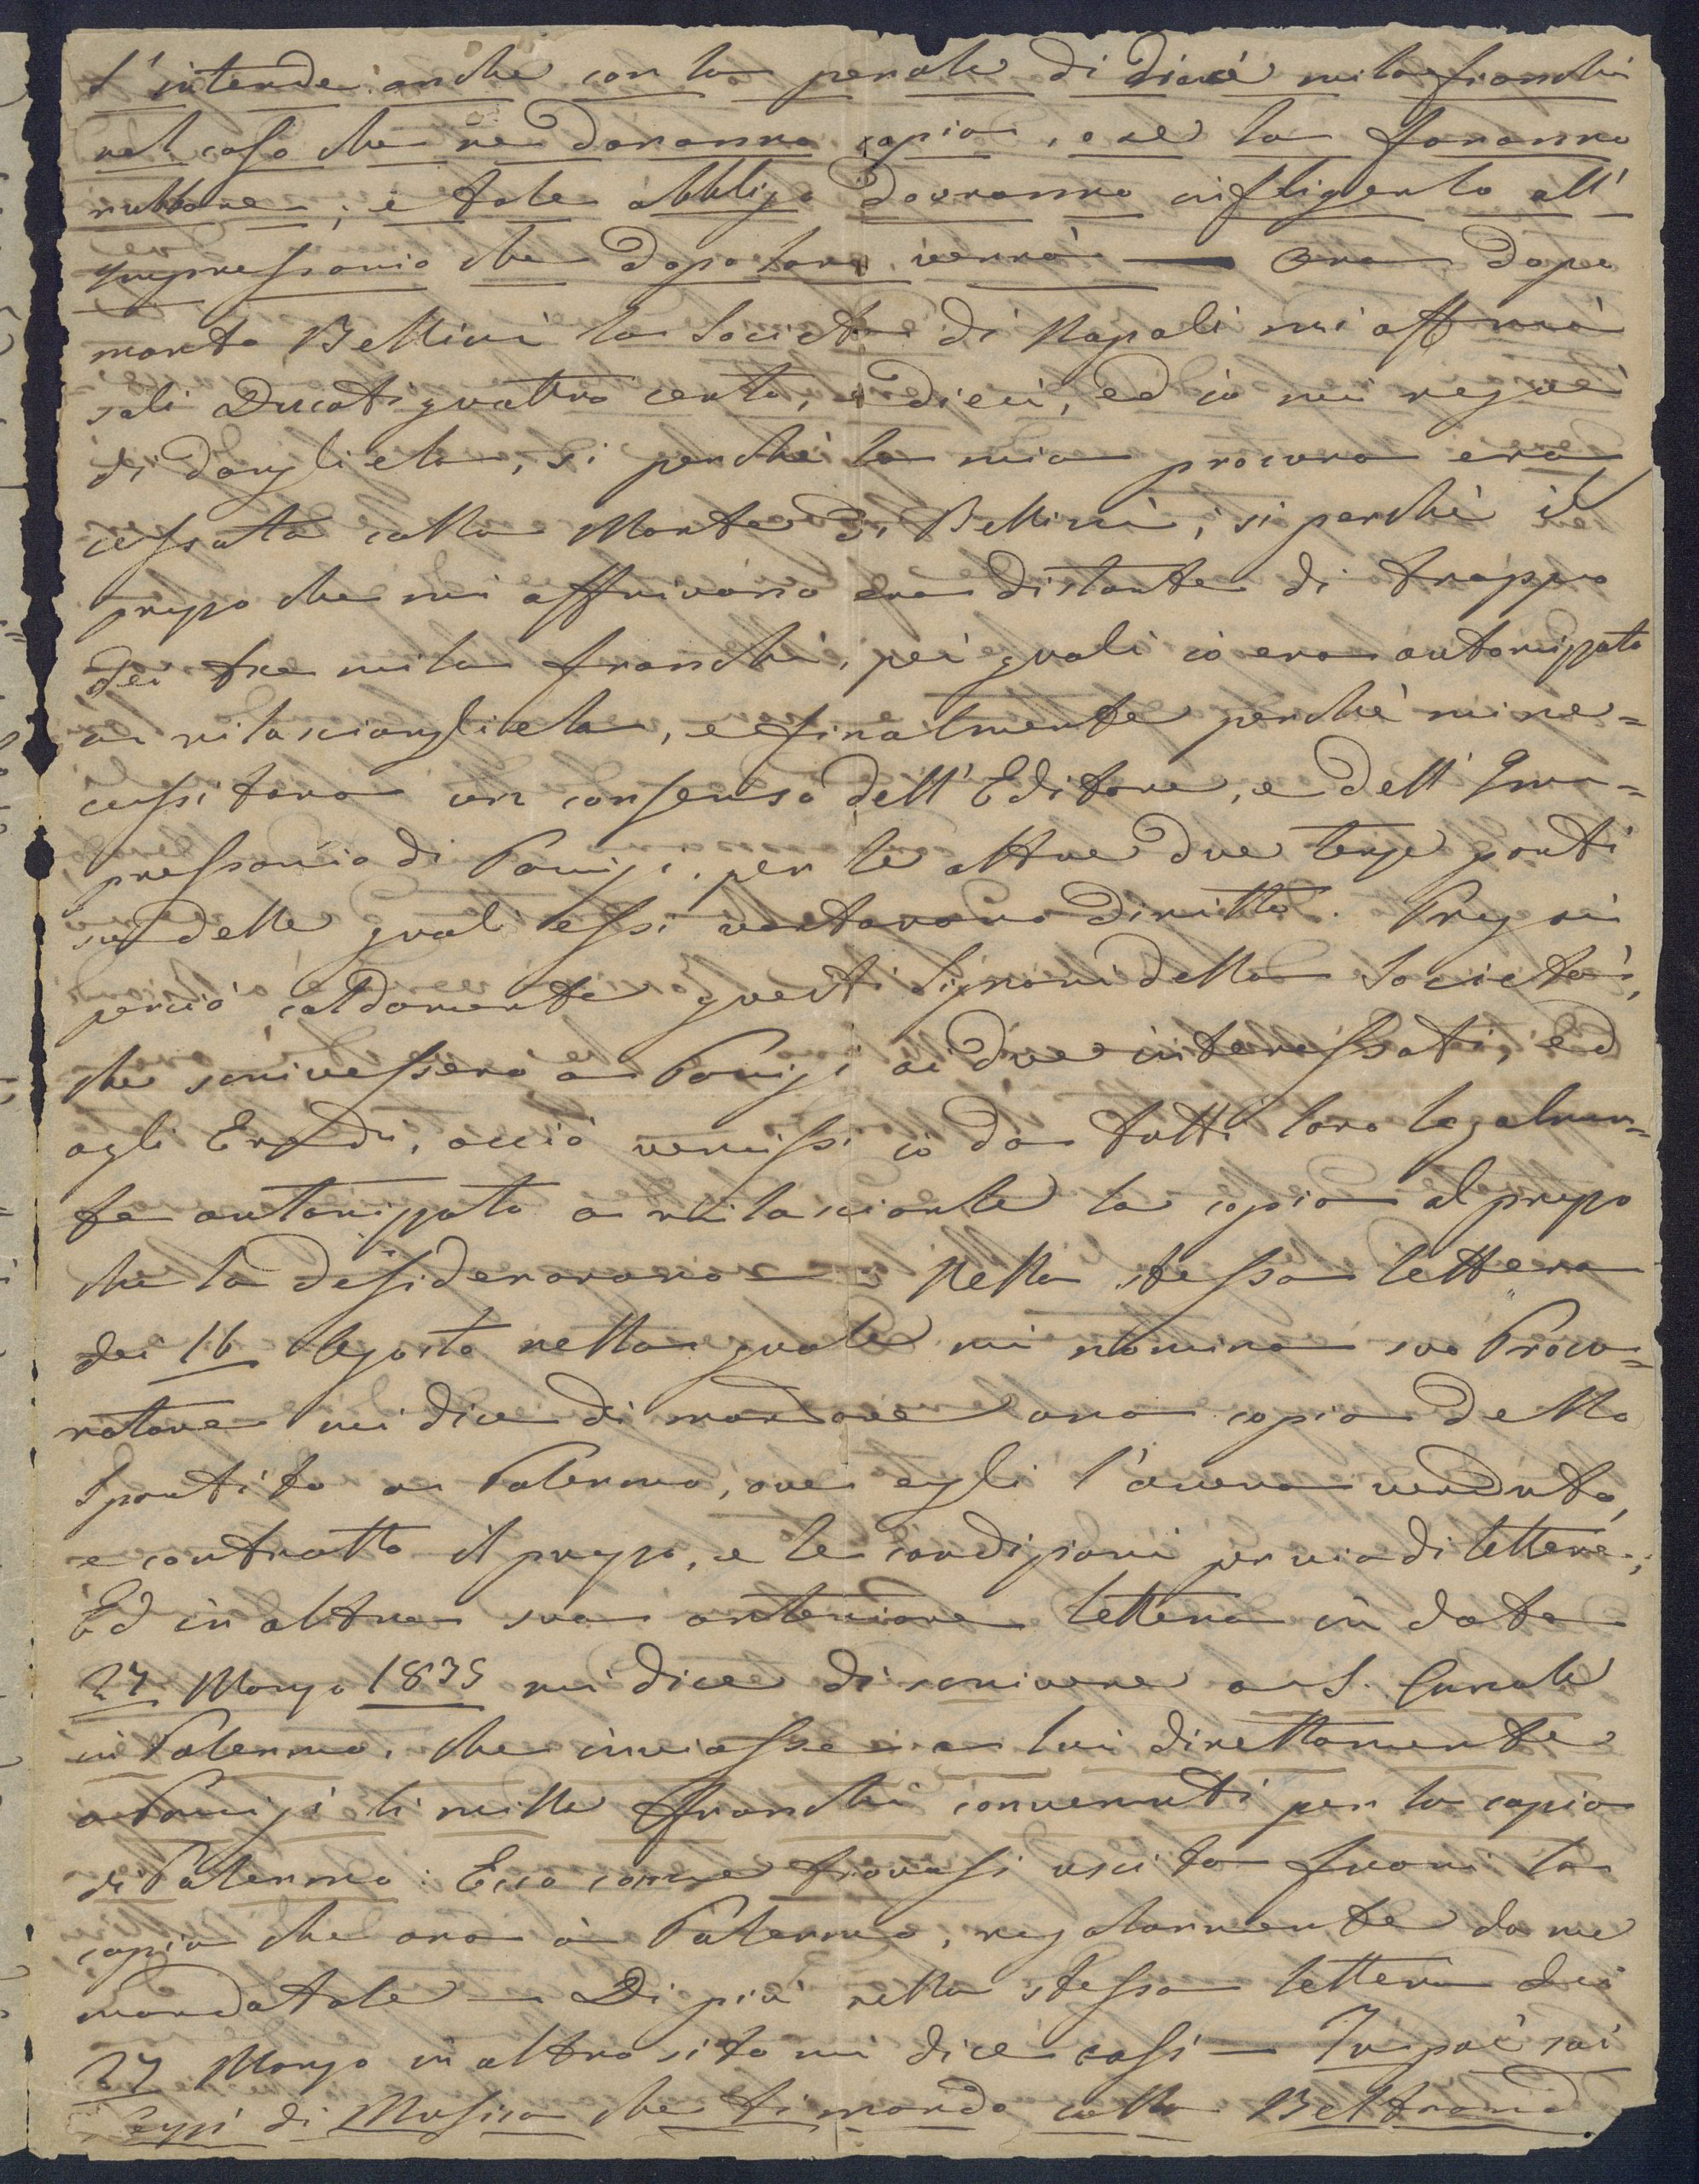 s'intende: anche con la penale di dieci mila franchi
nel caso che ne daranno copia, o se la faranno
rubbare; e tale obbligo dovranno infligerlo all'
Impressario che dopo loro verrà — Ora dopo
morto Bellini la Società di Napoli mi offrì
soli Ducati quattro cento, e dieci, ed io mi negai
di dargliela, sì perchè la mia procura era
cessata colla Morte di Bellini, sì perchè il
prezzo che mi offrivano era distante di troppo
dei tre mila franchi, pei quali io era autorizzato
a rilasciargliela, e finalmente perchè mi ne=
cessitava un consenso dell' Editore, e dell' Im=
pressario di Parigi, per le altre due terze parti
sudelle quali essi vantavano diritto. Pregai
perciò caldamente questi Signori della Società,
che scrivessero a Parigi ai due interessati, ed
agli Eredi, acciò venissi io da tutti loro legalmen=
te autorizzato a rilasciarle la copia al prezzo
che la desideravano — Nella stessa lettera
dei 16 Agosto nella quale mi nomina suo Procu=
ratore mi dice di mandare una copia dello
Spartito a Palermo, ove egli l'aveva venduto,
e contratto il prezzo, e le condizioni per via di lettere;
Ed in altra sua anteriore lettera in data
27 Marzo 1835 mi dice di scrivere a S.
in Palermo, che inviasse a lui direttamente
a Parigi li mille franchi convenuti per la copia
di Palermo: Ecco come trovasi uscita fuori la
copia che ora è a Palermo, regolarmente da me
mandatale — Di più nella stessa lettera dei
27 Marzo in altro sito mi dice così — Tu poi sai
pezzi di Musica che ti mando colla Beltrami